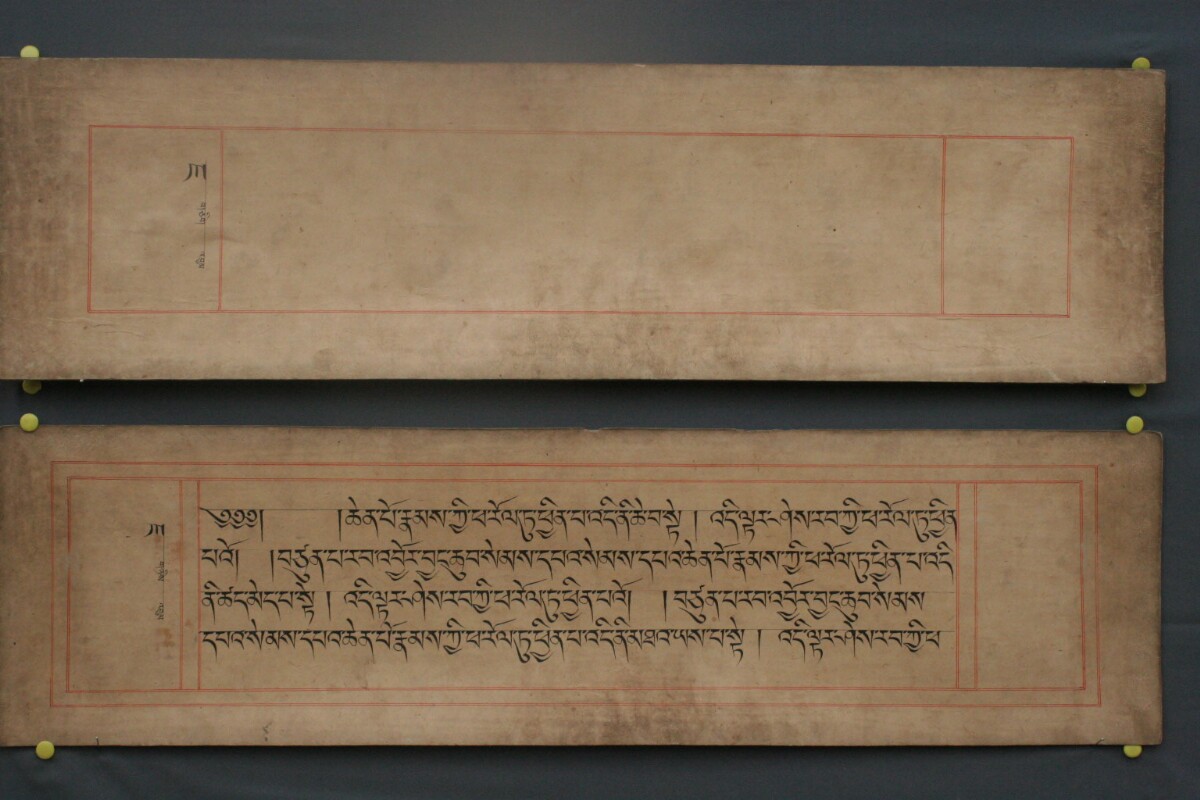 ཀ
༄༅༅།  །ཆེན་པོ་རྣམས་ཀྱི་ཕ་རོལ་ཏུ་ཕྱིན་པ་འདི་ནི་ཆེ་བ་སྟེ། འདི་ལྟར་ཤེས་རབ་ཀྱི་ཕ་རོལ་ཏུ་ཕྱིན
པའོ།  །བཙུན་པ་རབ་འབྱོར་བྱང་ཆུབ་སེམས་དཔའ་སེམས་དཔའ་ཆེན་པོ་རྣམས་ཀྱི་ཕ་རོལ་ཏུ་ཕྱིན་པ་འདི
ནི་ཚད་མེད་པ་སྟེ། འདི་ལྟར་ཤེས་རབ་ཀྱི་ཕ་རོལ་ཏུ་ཕྱིན་པའོ།  །བཙུན་པ་རབ་འབྱོར་བྱང་ཆུབ་སེམས
དཔའ་སེམས་དཔའ་ཆེན་པོ་རྣམས་ཀྱི་ཕ་རོལ་ཏུ་ཕྱིན་པ་འདི་ནི་མཐའ་ཡས་པ་སྟེ། འདི་ལྟར་ཤེས་རབ་ཀྱི་ཕ
ཀ